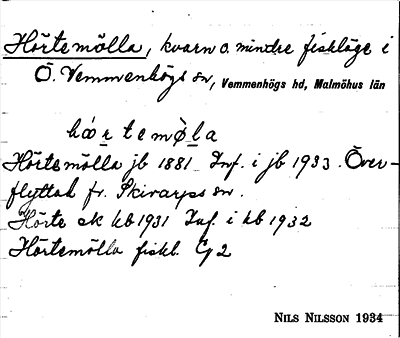 Hörtemölla, kvarn o. mindre fiskläge i
Ö. Vemmenhögs sn, Vemmenhögs hd, Malmöhus län
hǿr̠temø̠la
Hörtemölla jb 1881 Inf. i jb 1933. Över-
flyttad fr. Skivarps sn.
Hörte ek kb 1931 Inf. i kb 1932
Hörtemölla fiskl. G 2
NILS NILSSON 1934